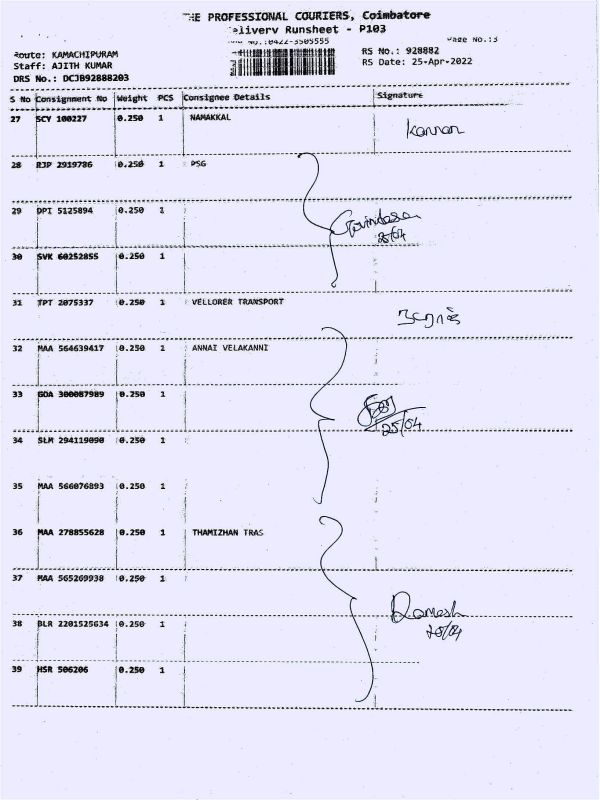 THE PROFESSIONAL COURIERS, Coimbatore
Delivery Runsheet - P103
No.:0422-3505555 Page No.:3
Route: KAMACHIPURAM RS No.: 928882
Staff: AJITH KUMAR RS Date: 25-Apr-2022
DRS No.: DCJB92888203
S No Consignment No Weight PCS Consignee Details Signature
27 SCY 100227 0.250 1 NAMAKKAL Kannan
28 RJP 2919786 0.250 1 PSG
29 DPI 5125894 0.250 1
25/04
30 SVK 60252855 0.250 1
31 TPT 2075337 0.250 1 VELLORER TRANSPORT
32 MAA 564639417 0.250 1 ANNAI VELAKANNI
33 GOA 300087989 0.250 1
25/04
34 SLM 294119090 0.250 1
35 MAA 566076893 0.250 1
36 MAA 278855628 0.250 1 THAMIZHAN TRAS
37 MAA 565269938 0.250 1
Ramesh
25/04
38 BLR 2201525634 0.250 1
39 HSR 506206 0.250 1